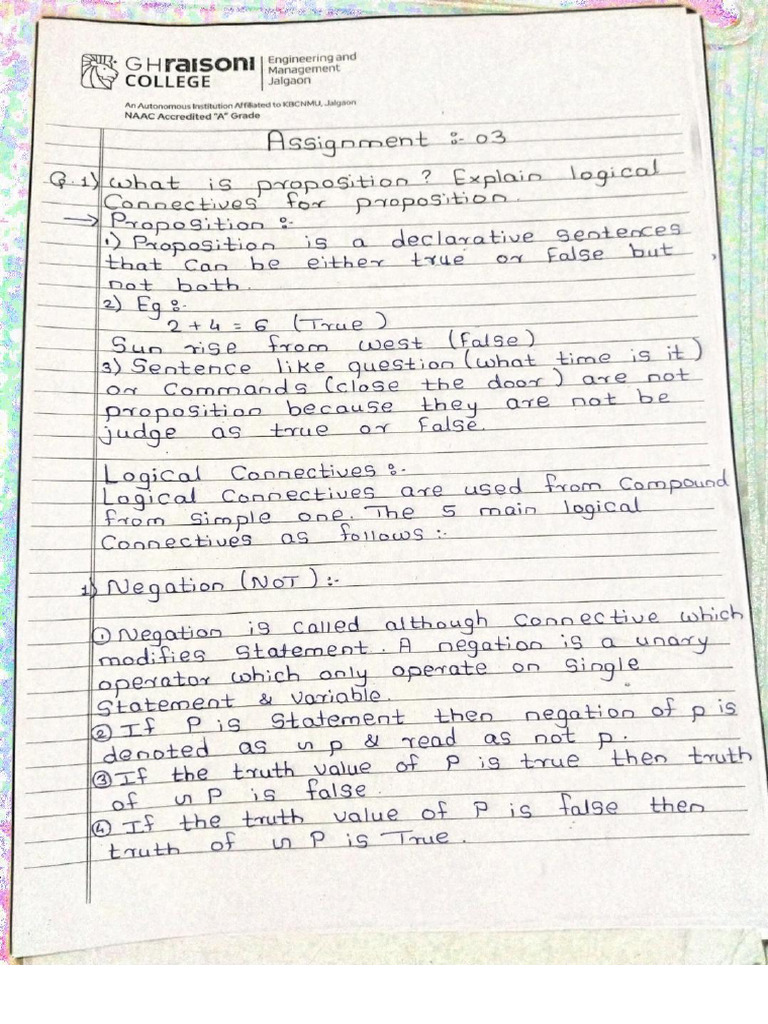 GHraisoni
COLLEGE
Engineering and
Management
Jalgaon
An Autonomous Institution Affiliated to KBCNMU, Jalgaon
NAAC Accredited "A" Grade
Assignment :- 03
Q.1) What is proposition? Explain logical
Connectives for proposition.
→ Proposition :-
1) Proposition is a declarative sentences
that can be either true or False but
not both.
2) Eg :-
2 + 4 = 6 (True)
Sun rise from west (False)
3) Sentence like question (what time is it)
or Commands (close the door) are not
proposition because they are not be
judge as true or False.
Logical Connectives :-
Logical Connectives are used from Compound
from simple one. The 5 main logical
Connectives as follows :-
1) Negation (NOT) :-
① Negation is called although Connective which
modifies Statement. A negation is a unary
operator which only operate on Single
Statement & variable.
② If P is Statement then negation of p is
denoted as ~p & read as not p.
③ If the truth value of P is true then truth
of ~P is false.
④ If the truth value of P is false then
truth of ~P is True.